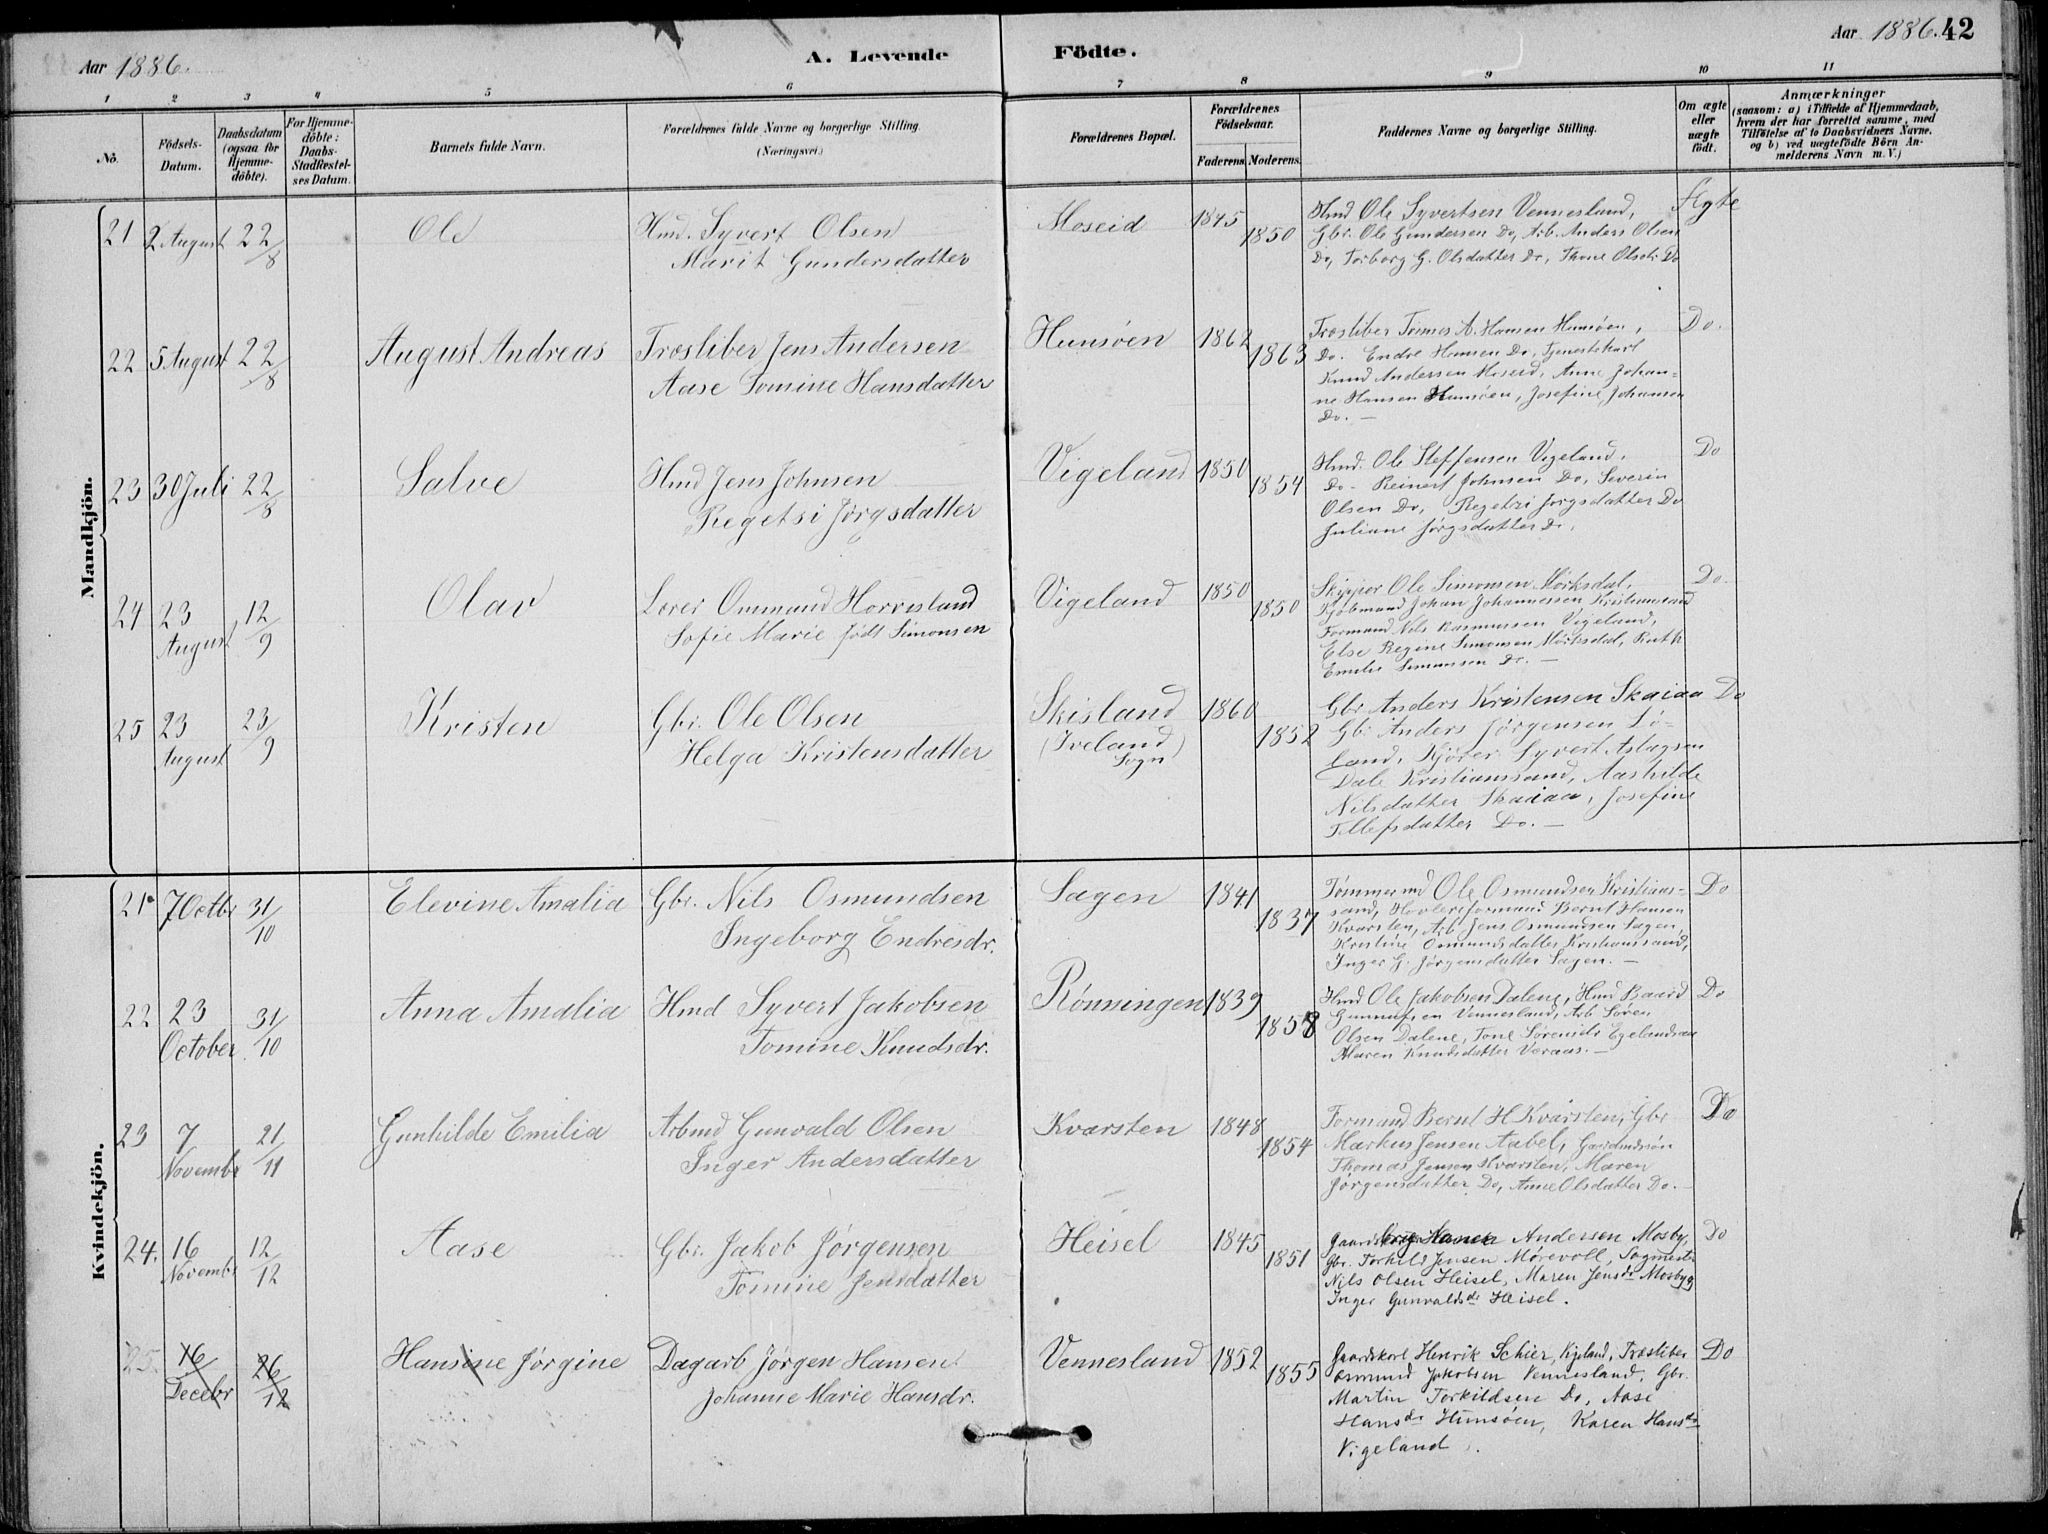 Aar 1886.
A. Levende Födte.
Aar 1886. 42
1 2 3 4 5 6 7 8 9 10 11
No.
Födsels-
Datum.
Daabsdatum
(ogsaa for
Hjemme-
döbte).
For Hjemme-
döbte:
Daabs-
Stadfæstel-
ses Datum.
Barnets fulde Navn.
Forældrenes fulde Navne og borgerlige Stilling.
(Næringsvei.)
Forældrenes Bopæl.
Forældrenes
Födselsaar.
Faderens Moderens.
Faddernes Navne og borgerlige Stilling.
Om ægte
eller
uægte
födt.
Anmærkninger
(saasom: a) i Tilfælde af Hjemmedaab,
hvem der har forrettet samme, med
Tilföielse af to Daabsvidners Navne.
og b) ved uægtefödte Börn An-
melderens Navn m. V.)
Mandkjön.
21 2 August 22/8 Ole
Hmd. Syvert Olsen
Marit Gundersdatter
Moseid 1845 1850
Hmd Ole Syvertsen Vennesland,
Gbr. Ole Gundersen Do, Arb. Anders Olsen
Do, Torborg G. Olsdatter Do, Thone Olsdtr Do
Ægte
22 5 August 22/8 August Andreas
Træsliber Jens Andersen
Aase Tomine Hansdatter
Hunsøen 1862 1863
Træsliber Tomas A. Hansen Hunsøen,
Do. Endre Hansen Do, Tjenestekarl
Knud Andersen Moseid, Anne Johan-
ne Hansen Hunsøen, Josefine Johansen
Do. —
Do.
23 30 Juli 22/8 Salve
Hmd Jens Johnsen
Regetsi Jørgsdatter
Vigeland 1850 1854
Hmd. Ole Steffensen Vigeland,
Do - Reinert Johnsen Do, Severin
Olsen Do, Regetzi Jørgsdatter Do
Juliane Jørgsdatter Do,
Do
24 23 August 12/9 Olav
Lærer Ommund Horrisland
Sofie Marie født Simonsen
Vigeland 1850 1850
Skipper Ole Simonsen Mørksdal,
Kjøbmand Johan Johannessen Kristianssand
Formand Nils Rasmussen Vigeland,
Else Regine Simonsen Mørksdal, Ruth
Emilie Simonsen Do. —
Do.
25 23 August 23/9 Kristen
Gbr. Ole Olsen
Helga Kristensdatter
Skisland
(Iveland)
Sogn
1860 1852
Gbr Anders Kristensen Skaiaa
Gbr Anders Jørgensen Lø-
land, Kjører Syvert Aslagsen
Dale Kristianssand, Aashilde
Nilsdatter Skaiaa, Josefine
Tellefsdatter Do. —
Do
Kvindekjön.
21 7 Octbr 31/10 Elevine Amalia
Gbr. Nils Osmundsen
Ingeborg Endresdr.
Sagen 1841 1837
Tømmermd Ole Osmundsen Kristians-
sand, Høvleriformand Bernt Hansen
Kvarsten, Arb Jens Osmundsen Sagen,
Kristine Osmundsdatter Kristianssand,
Inger G. Jørgensdatter Sagen. —
Do
22 23 October 31/10 Anna Amalia
Hmd Syvert Jakobsen
Tomine Knudsdr.
Rønningen 1839 1858
Hmd Ole Jakobsen Dalene, Hmd Baard
Gunnufsen Vennesland, Arb Søren
Olsen Dalene, Tone Sørensdr Egelandsaa
Maren Knudsdatter Veraas. —
Do
23 7 Novembr 21/11 Gunhilde Emilia
Arbmd Gunvald Olsen
Inger Andersdatter
Kvarsten 1848 1854
Formand Bernt H Kvarsten, Gbr
Markus Jensen Aabel, Gaardmdsøn
Thomas Jensen Kvarsten, Maren
Jørgensdatter Do, Anne Olsdatter Do. —
Do
24. 16 Novembr 12/12 Aase
Gbr. Jakob Jørgensen
Tomine Jensdatter
Heisel 1845 1851
Andersen Mosby,
Gbr. Torkild Jensen Mørevoll, Sagmester
Nils Olsen Heisel, Maren Jensdr Mosby og
Inger Gunvaldsdr Heisel.
Do
25. 16 Decebr 26/12 Hansine Jørgine
Dagarb Jørgen Hansen
Johanne Marie Hansdr.
Vennesland 1852 1855
Gaardskarl Henrik Schier, Vigeland, Træsliber
Osmund Jakobsen Vennesland, Gbr.
Martin Torkildsen Do, Aase
Hansdr Hunsøen, Karen Hansdr
Vigeland.
Do